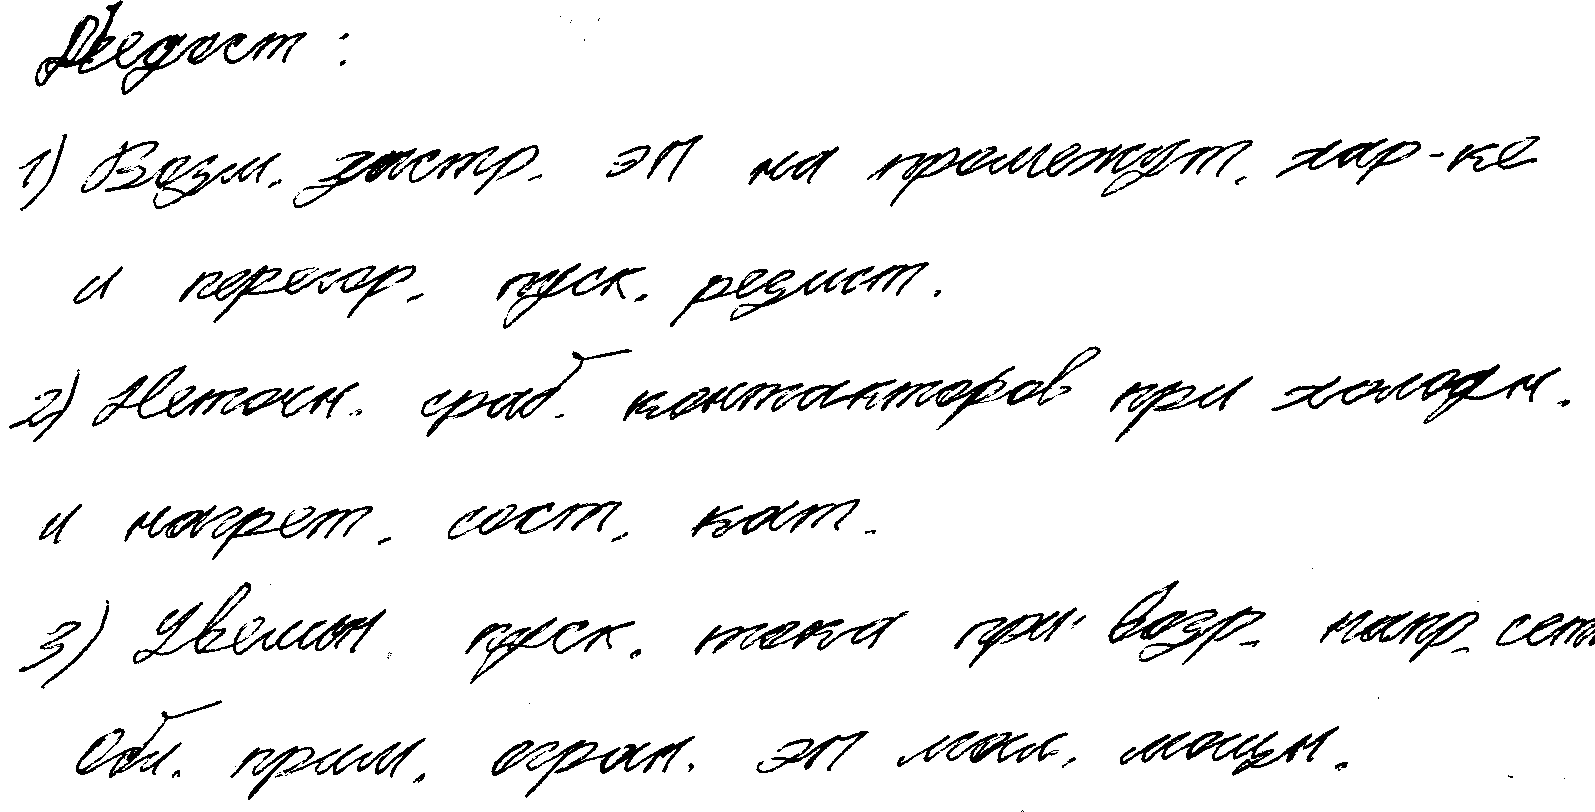 Недост:
1) Возм. застр. ЭП на промежут. хар-ке
и перегор. пуск. резист.
2) Неточн. сраб. контакторов при холодн.
и нагрет. сост. кат.
3) Увелич. пуск. тока при возр. напр. сети
Обл. прим. огран. ЭП мал. мощн.